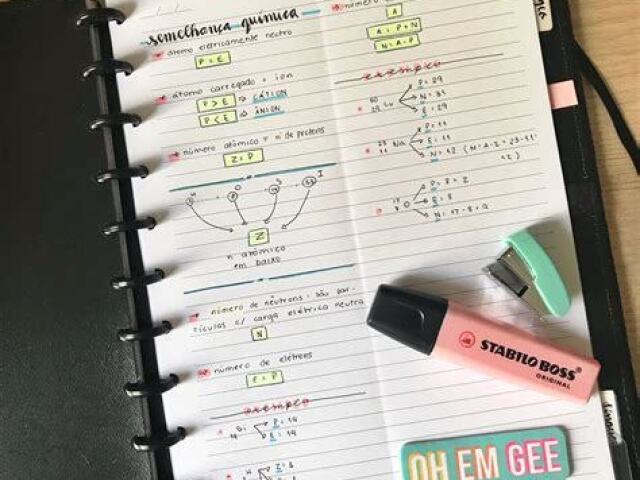 semelhança química
átomo eletricamente neutro
P = E
átomo carregado = íon
P > E ⇒ CÁTION
P < E ⇒ ÂNION
número atômico = nº de prótons
Z = P
Z
nº atômico
em baixo
número de nêutrons: são par-
tículas c/ carga elétrica neutra
N
número de elétrons
E = P
exemplo
Si
14
P = 14
E = 14
número
A
A = P + N
N = A - P
exemplo
60
29 Cu
P = 29
N = 31
E = 29
23
11 Na
P = 11
E = 11
N = 12 (N = A - Z = 23 - 11 =
12)
17
8 O
P = 8 = Z
E = 8
N = 17 - 8 = 9
STABILO BOSS
ORIGINAL
OH EM GEE